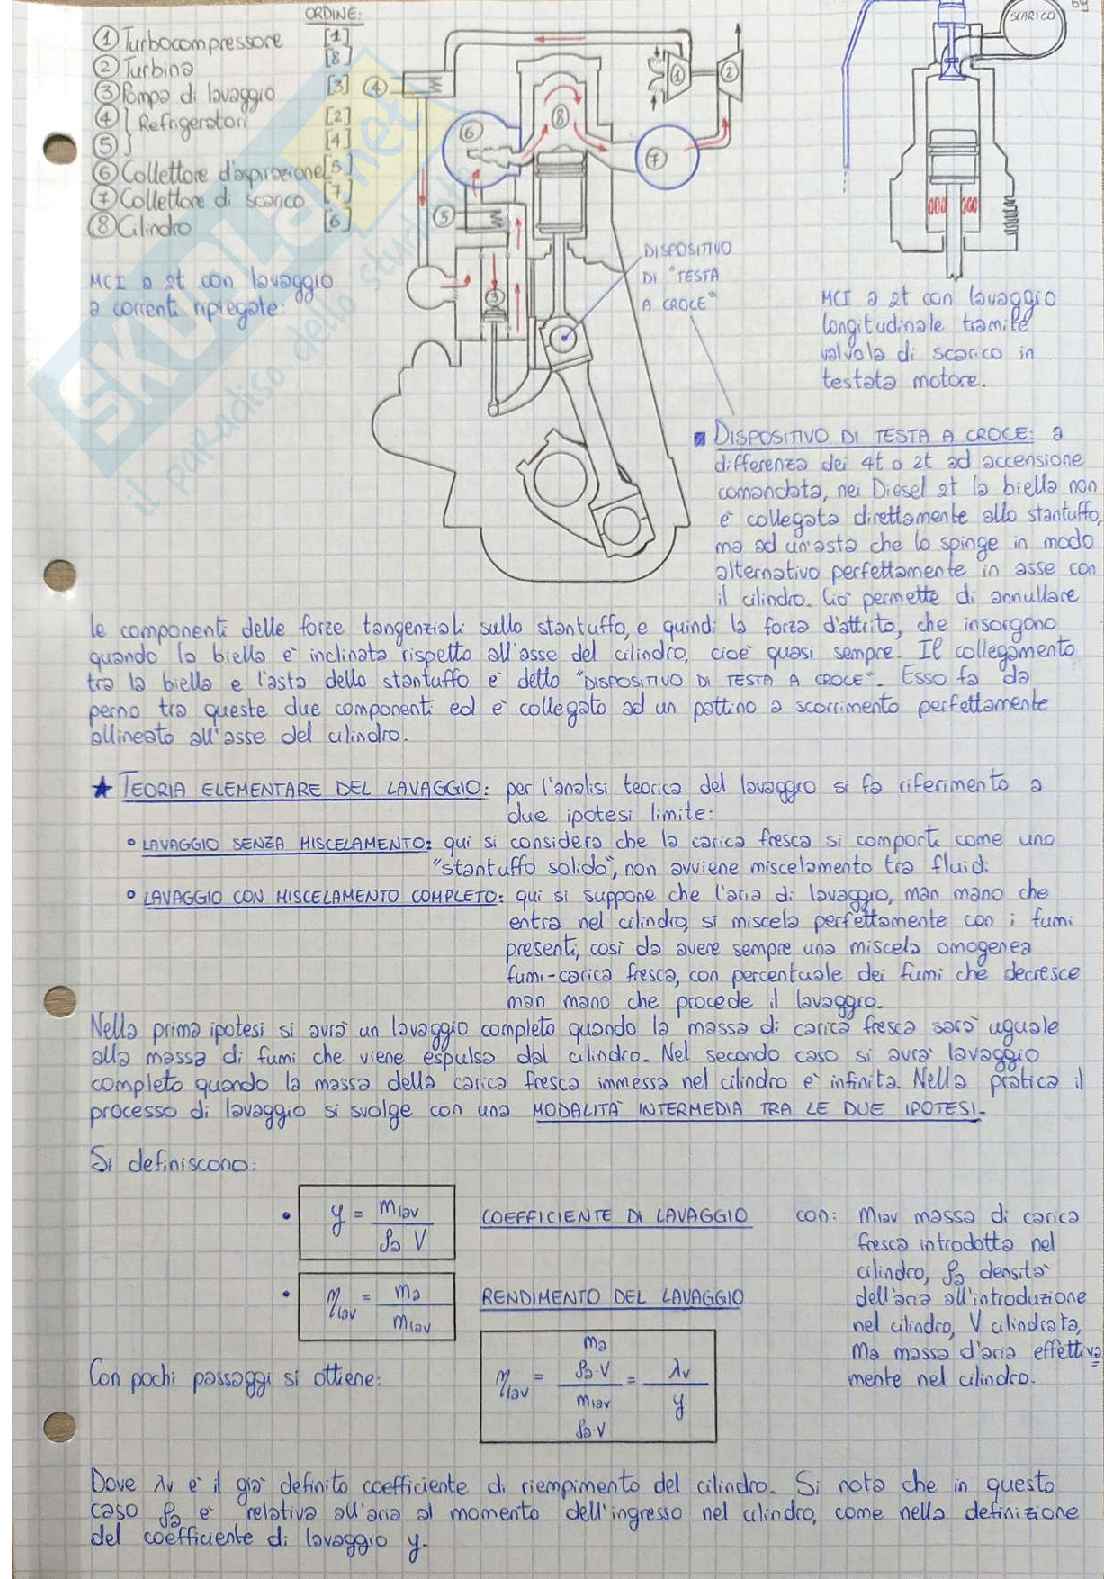 ORDINE:
① Turbocompressore [1]
② Turbina [8]
③ Pompa di lavaggio [3]
④ } Refrigeratori [2]
⑤ } [4]
⑥ Collettore d'aspirazione [5]
⑦ Collettore di scarico [7]
⑧ Cilindro [6]
MCI a 2t con lavaggio
a correnti ripiegate:
④
①
②
⑥
⑧
⑦
⑤
③
DISPOSITIVO
DI "TESTA
A CROCE"
SCARICO
MCI a 2t con lavaggio
longitudinale tramite
valvola di scarico in
testata motore.
DISPOSITIVO DI TESTA A CROCE: a
differenza dei 4t o 2t ad accensione
comandata, nei Diesel 2t la biella non
è collegata direttamente allo stantuffo,
ma ad un'asta che lo spinge in modo
alternativo perfettamente in asse con
il cilindro. Ciò permette di annullare
le componenti delle forze tangenziali sullo stantuffo, e quindi la forza d'attrito, che insorgono
quando la biella è inclinata rispetto all'asse del cilindro, cioè quasi sempre. Il collegamento
tra la biella e l'asta dello stantuffo è detto "DISPOSITIVO DI TESTA A CROCE". Esso fa da
perno tra queste due componenti ed è collegato ad un pattino a scorrimento perfettamente
allineato all'asse del cilindro.
★ TEORIA ELEMENTARE DEL LAVAGGIO: per l'analisi teorica del lavaggio si fa riferimento a
due ipotesi limite:
° LAVAGGIO SENZA MISCELAMENTO: qui si considera che la carica fresca si comporti come uno
"stantuffo solido", non avviene miscelamento tra fluidi.
° LAVAGGIO CON MISCELAMENTO COMPLETO: qui si suppone che l'aria di lavaggio, man mano che
entra nel cilindro, si miscela perfettamente con i fumi
presenti, così da avere sempre una miscela omogenea
fumi-carica fresca, con percentuale dei fumi che decresce
man mano che procede il lavaggio.
Nella prima ipotesi si avrà un lavaggio completo quando la massa di carica fresca sarà uguale
alla massa di fumi che viene espulsa dal cilindro. Nel secondo caso si avrà lavaggio
completo quando la massa della carica fresca immessa nel cilindro è infinita. Nella pratica il
processo di lavaggio si svolge con una MODALITÀ INTERMEDIA TRA LE DUE IPOTESI.
Si definiscono:
• y = m_lav / ρa V COEFFICIENTE DI LAVAGGIO con: mlav massa di carica
fresca introdotta nel
cilindro, ρa densità
• η_lav = ma / m_lav RENDIMENTO DEL LAVAGGIO dell'aria all'introduzione
nel cilindro, V cilindrata,
ma massa d'aria effettiva
mente nel cilindro.
Con pochi passaggi si ottiene: η_lav = (ma / ρa·V) / (m_lav / ρa·V) = λv / y
Dove λv è il già definito coefficiente di riempimento del cilindro. Si nota che in questo
caso ρa è relativa all'aria al momento dell'ingresso nel cilindro, come nella definizione
del coefficiente di lavaggio y.
SKUOLA.net
il paradiso dello